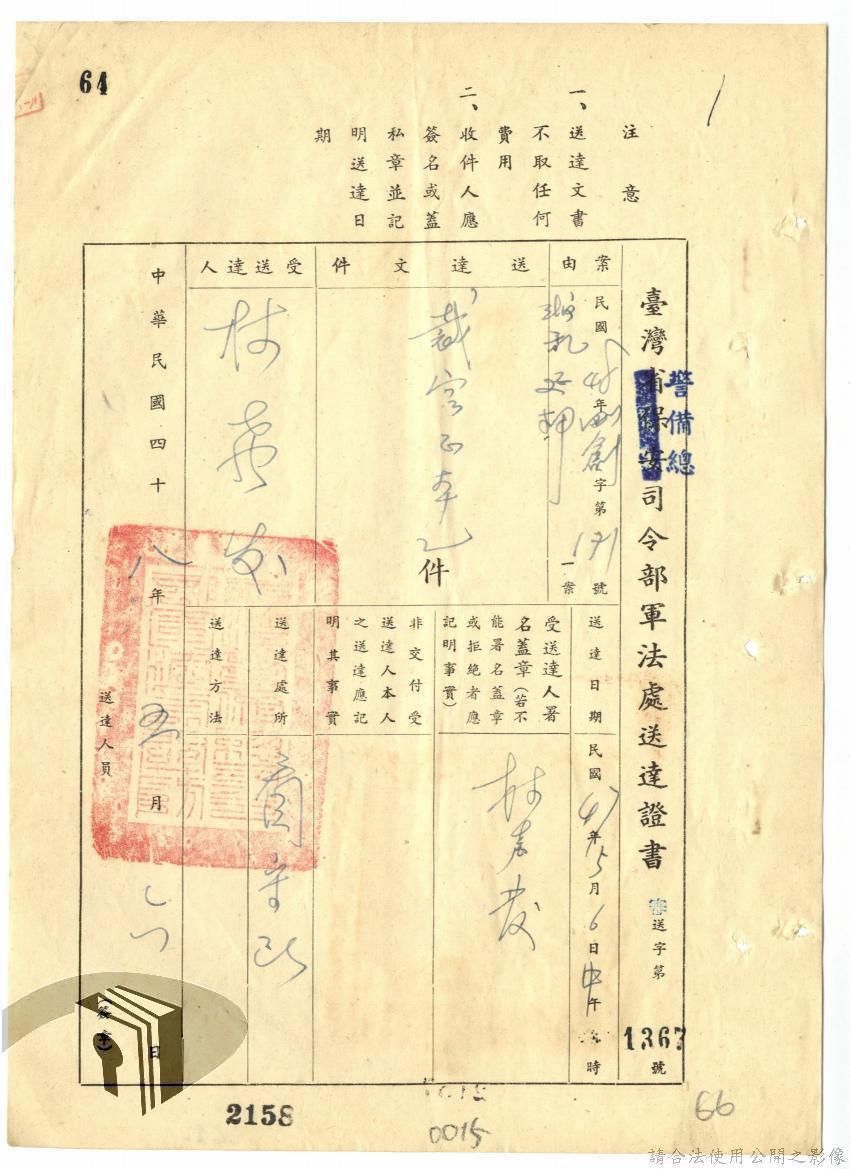 64
注意
一、送達文書
不取任何
費用
二、收件人應
簽名或蓋
私章並記
明送達日
期
臺灣省保安司令部軍法處送達證書
警備總
審送字第1367號
案由
民國48年字第171號
一案
叛亂
送達文件
裁定正本乙件
受送達人
林
送達日期
民國47年5月6日中午
時
受送達人署
名蓋章(若不
能署名蓋章
或拒絕者應
記明事實)
林
非交付受
送達人本人
之送達應記
明其事實
送達處所
送達方法
中華民國四十八年五月
日
送達人員
(簽章)
2158
0015
66
請合法使用公開之影像